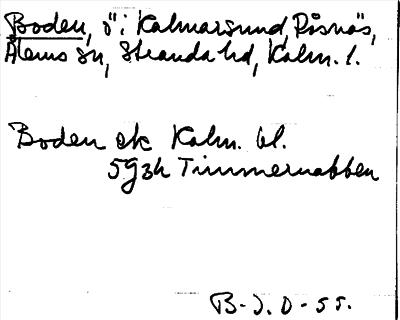 Boden, ö i Kalmarsund, Påsnäs,
Ålems sn, Stranda hd, Kalm. l.
Boden ek Kalm. bl.
5g3h Timmernabben
B-J. D-55.